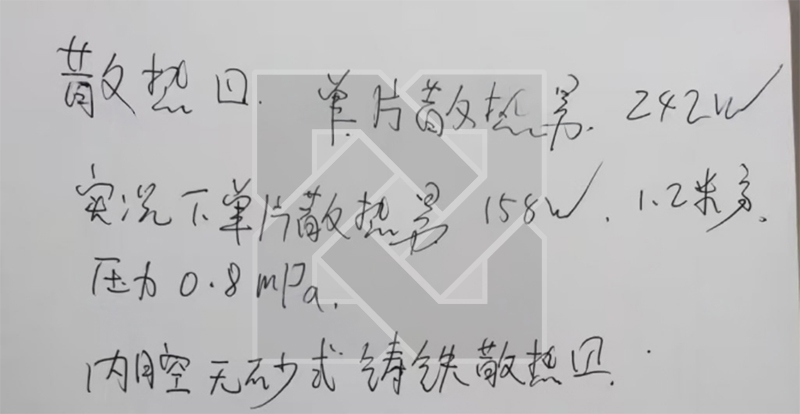 散热口. 单片散热量. 242W
实况下单片散热量 158W. 1.2米高.
压力 0.8mPa.
内腔无砂式铸铁散热口.